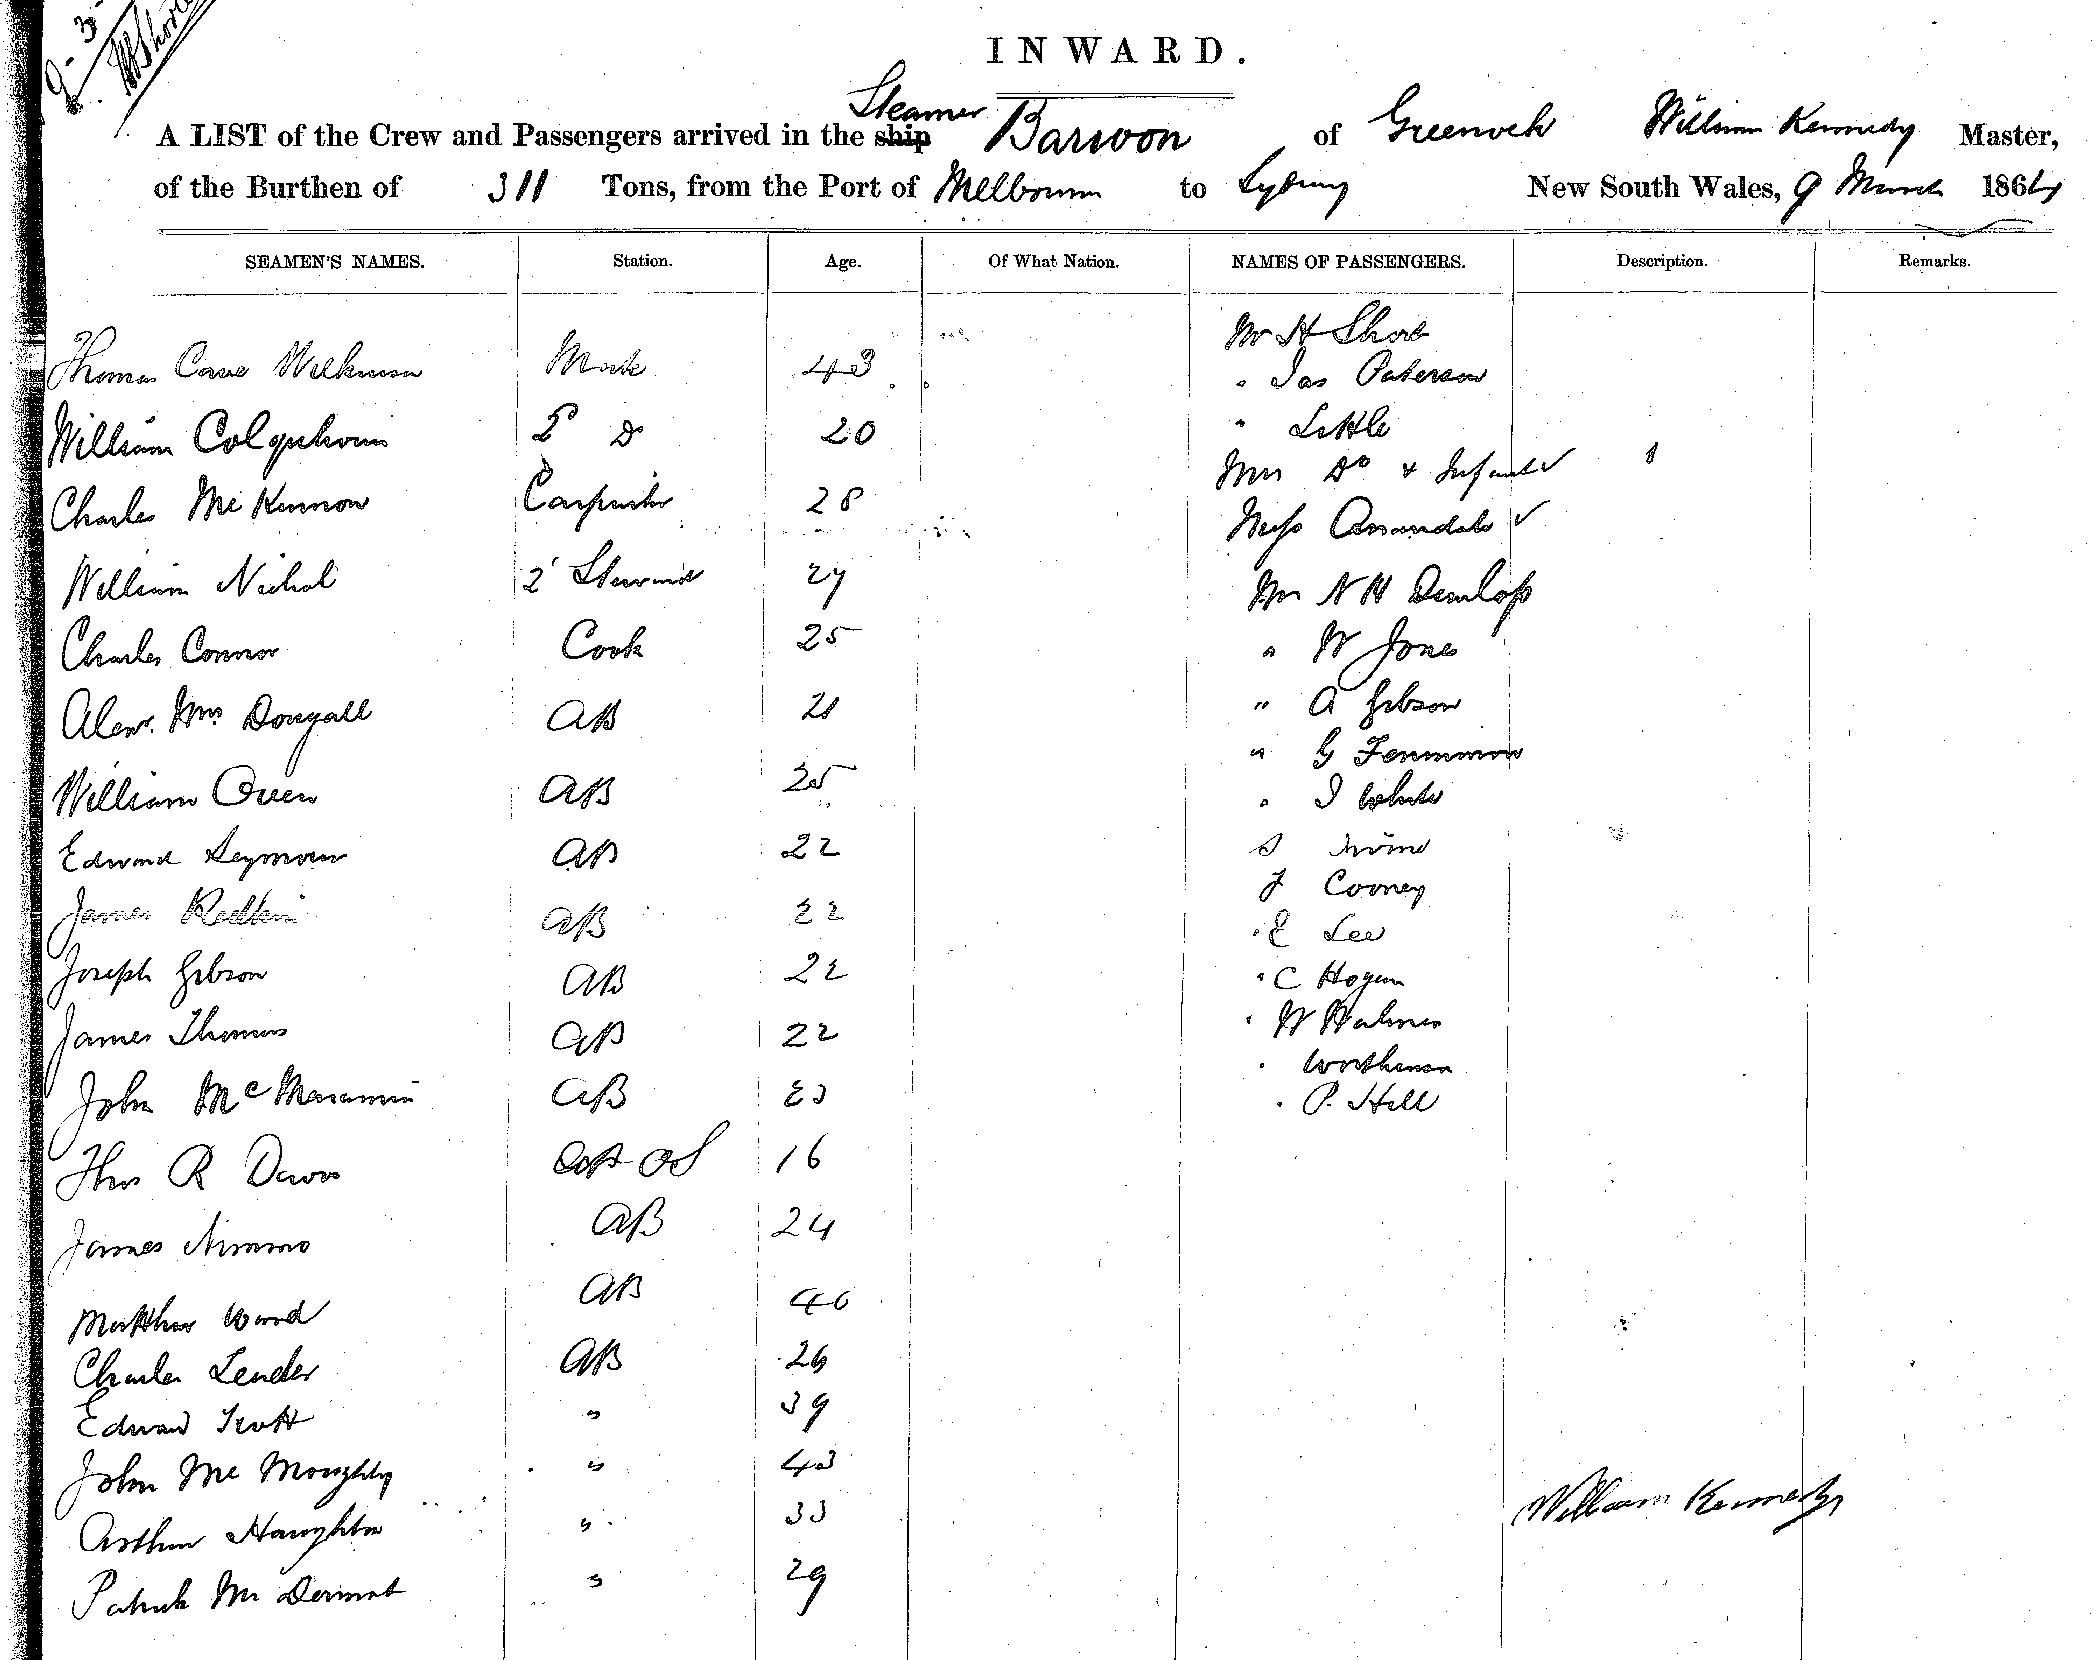 INWARD.
Steamer
A LIST of the Crew and Passengers arrived in the ship Barwon of Greenock William Kennedy Master,
of the Burthen of 311 Tons, from the Port of Melbourne to Sydney New South Wales, 9 March 1864
SEAMEN'S NAMES. Station. Age. Of What Nation. NAMES OF PASSENGERS. Description. Remarks.
Thomas Cave Wilkinson Mate 43
William Colquhoun 2d Do 20
Charles McKinnon Carpenter 28
William Nichol 2d Steward 27
Charles Connor Cook 25
Alexr. Mc Dougall AB 21
William Owen AB 25
Edward Seymour AB 22
James AB 22
Joseph Gibson AB 22
James Thomas AB 22
John McMenamin AB 23
Thos R Davis AB OS 16
James Nimmo AB 24
Matthew Ward AB 40
Charles Lender AB 26
Edward Scott " 39
John Mc " 43
Arthur Haughton " 33
Patrick Mc Dermot " 29
Mr H Short
" Jas Paterson
" Little
Mrs Do & Infant
Miss Annandale
Mr N W Dunlop
" W Jones
" A Gibson
" G
" J White
S Irvine
J Cooney
" E Lee
" C Hogan
" W Holmes
"
" P. Hill
William Kennedy